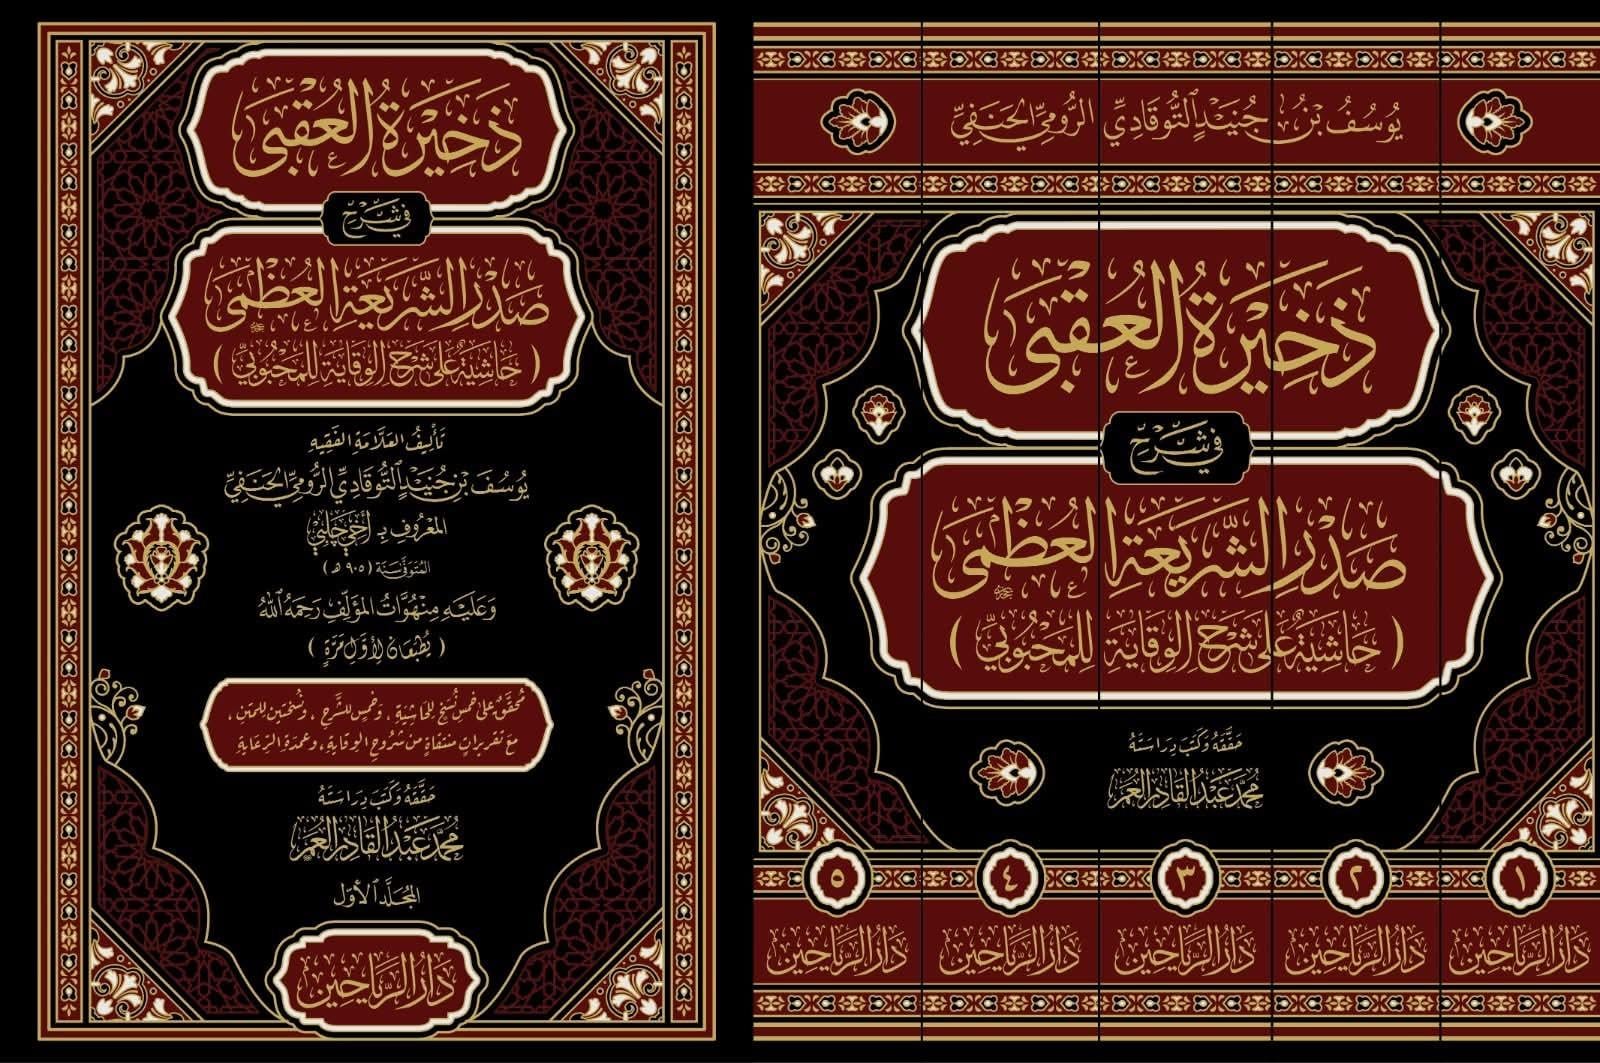 ذَخِيْرَةُ العُقْبَى
فِي شَرْحِ
صَدْرِ الشَّرِيْعَةِ العُظْمَى
( حَاشِيَةٌ عَلَى شَرْحِ الوِقَايَةِ لِلْمَحْبُوبِيِّ )
تَأْلِيفُ العَلَّامَةِ الفَقِيهِ
يُوسُفَ بْنِ جُنَيْدٍ التُّوقَادِيِّ الرُّومِيِّ الحَنَفِيِّ
المَعْرُوفِ بِـ أَخِي چَلَبِي
المُتَوَفَّى سَنَةَ ( ٩٠٥ هـ )
وَعَلَيْهِ مِنْهُوَّاتُ المُؤَلِّفِ رَحِمَهُ اللهُ
( يُطْبَعَانِ لِأَوَّلِ مَرَّةٍ )
مُحَقَّقٌ عَلَى خَمْسِ نُسَخٍ لِلْحَاشِيَةِ ، وَخَمْسٍ لِلشَّرْحِ ، وَنُسْخَتَيْنِ لِلْمَتْنِ ،
مَعَ تَقْرِيرَاتٍ مُنْتَقَاةٍ مِنْ شُرُوحِ الوِقَايَةِ ، وَعُمْدَةِ الرِّعَايَةِ
حَقَّقَهُ وَكَتَبَ دِرَاسَتَهُ
مُحَمَّد عَبْدُ القَادِرِ العُمَر
المُجَلَّدُ الأَوَّلُ
دَارُ الرَّيَاحِين
يُوسُفُ بْنُ جُنَيْدٍ التُّوقَادِيِّ الرُّومِيِّ الحَنَفِيِّ
ذَخِيْرَةُ العُقْبَى
فِي شَرْحِ
صَدْرِ الشَّرِيْعَةِ العُظْمَى
( حَاشِيَةٌ عَلَى شَرْحِ الوِقَايَةِ لِلْمَحْبُوبِيِّ )
حَقَّقَهُ وَكَتَبَ دِرَاسَتَهُ
مُحَمَّد عَبْدُ القَادِرِ العُمَر
١ ٢ ٣ ٤ ٥
دَارُ الرَّيَاحِين دَارُ الرَّيَاحِين دَارُ الرَّيَاحِين دَارُ الرَّيَاحِين دَارُ الرَّيَاحِين